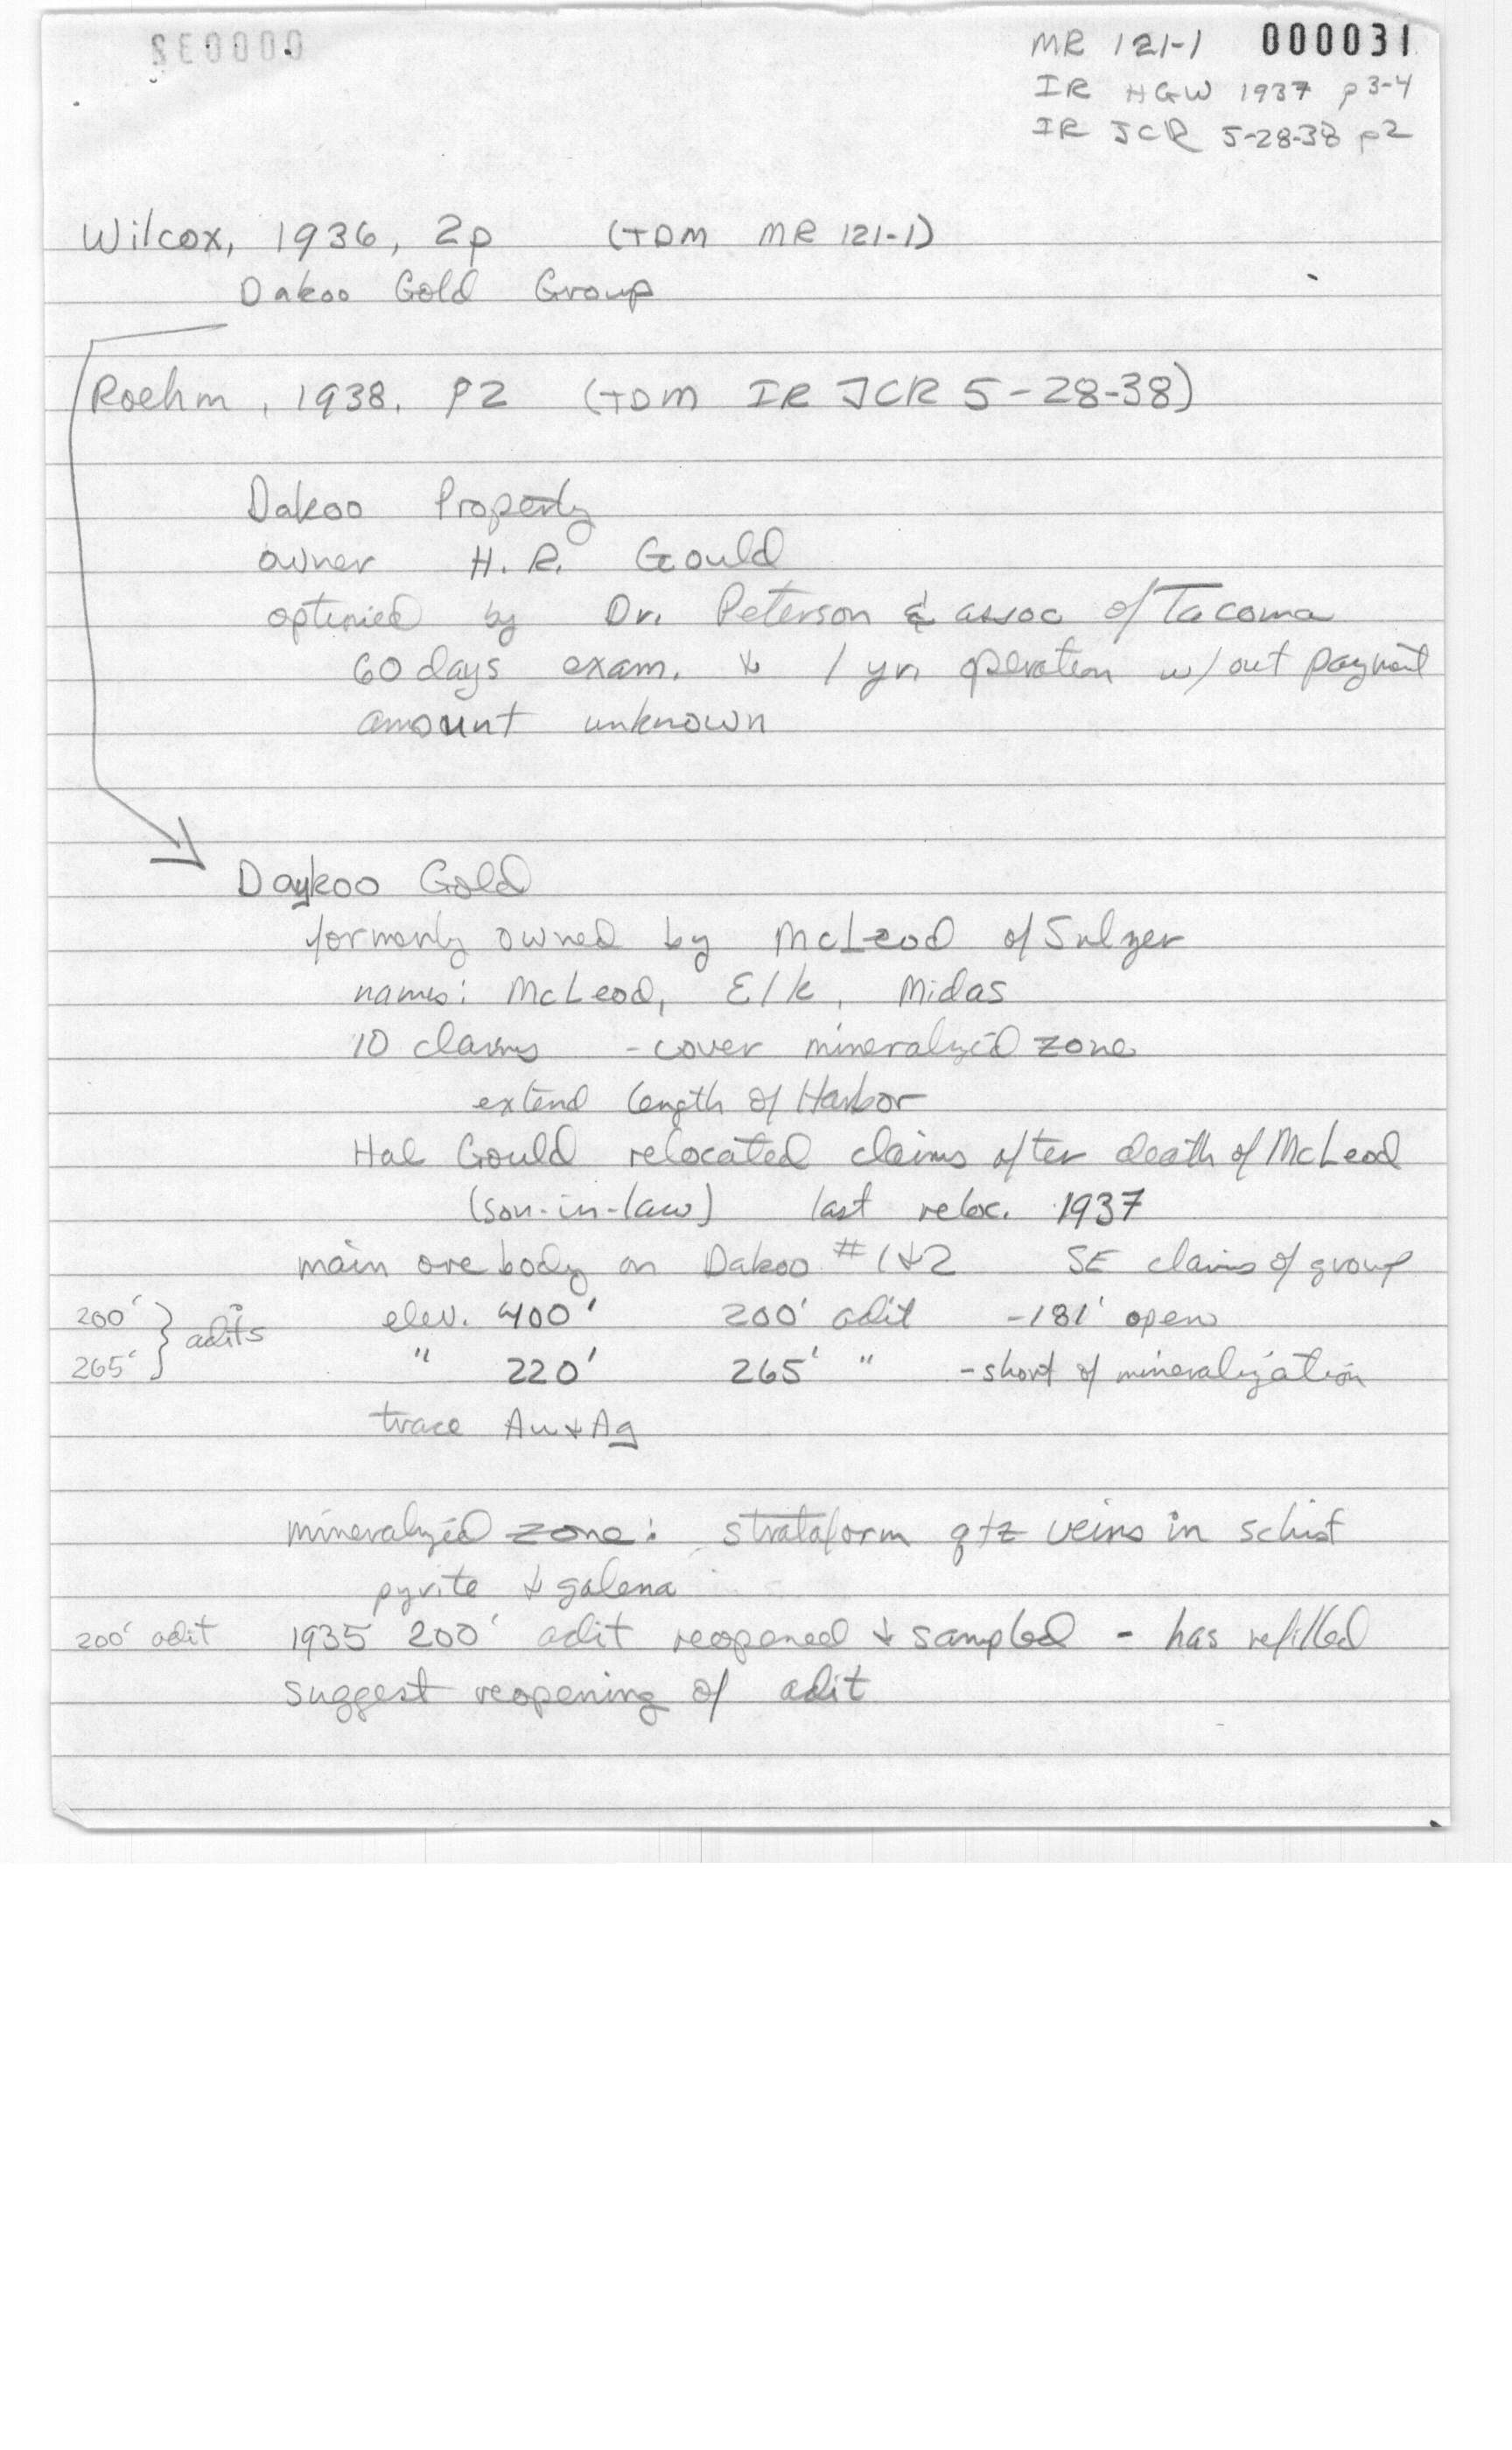 000032
MR 121-1 000031
IR HGW 1937 p3-4
IR JCR 5-28-38 p2
Wilcox, 1936, 2p (TDM MR 121-1)
Dakoo Gold Group
Roehm, 1938, p2 (TDM IR JCR 5-28-38)
Dakoo Property
owner H. R. Gould
optioned by Dr. Peterson & assoc of Tacoma
60 days exam. & 1 yr. operation w/out payment
amount unknown
Daykoo Gold
formerly owned by McLeod of Sulzer
names: McLeod, Elk, Midas
10 claims - cover mineralized zone
extend length of Harbor
Hal Gould relocated claims after death of McLeod
(son-in-law) last reloc. 1937
main ore body on Dakoo #1&2 SE claims of group
200' } adits elev. 400' 200' adit -181' open
265' " 220' 265' " - short of mineralization
trace Au & Ag
mineralized zone: strataform qtz veins in schist
pyrite & galena
200' adit 1935 200' adit reopened & sampled - has refilled
suggest reopening of adit